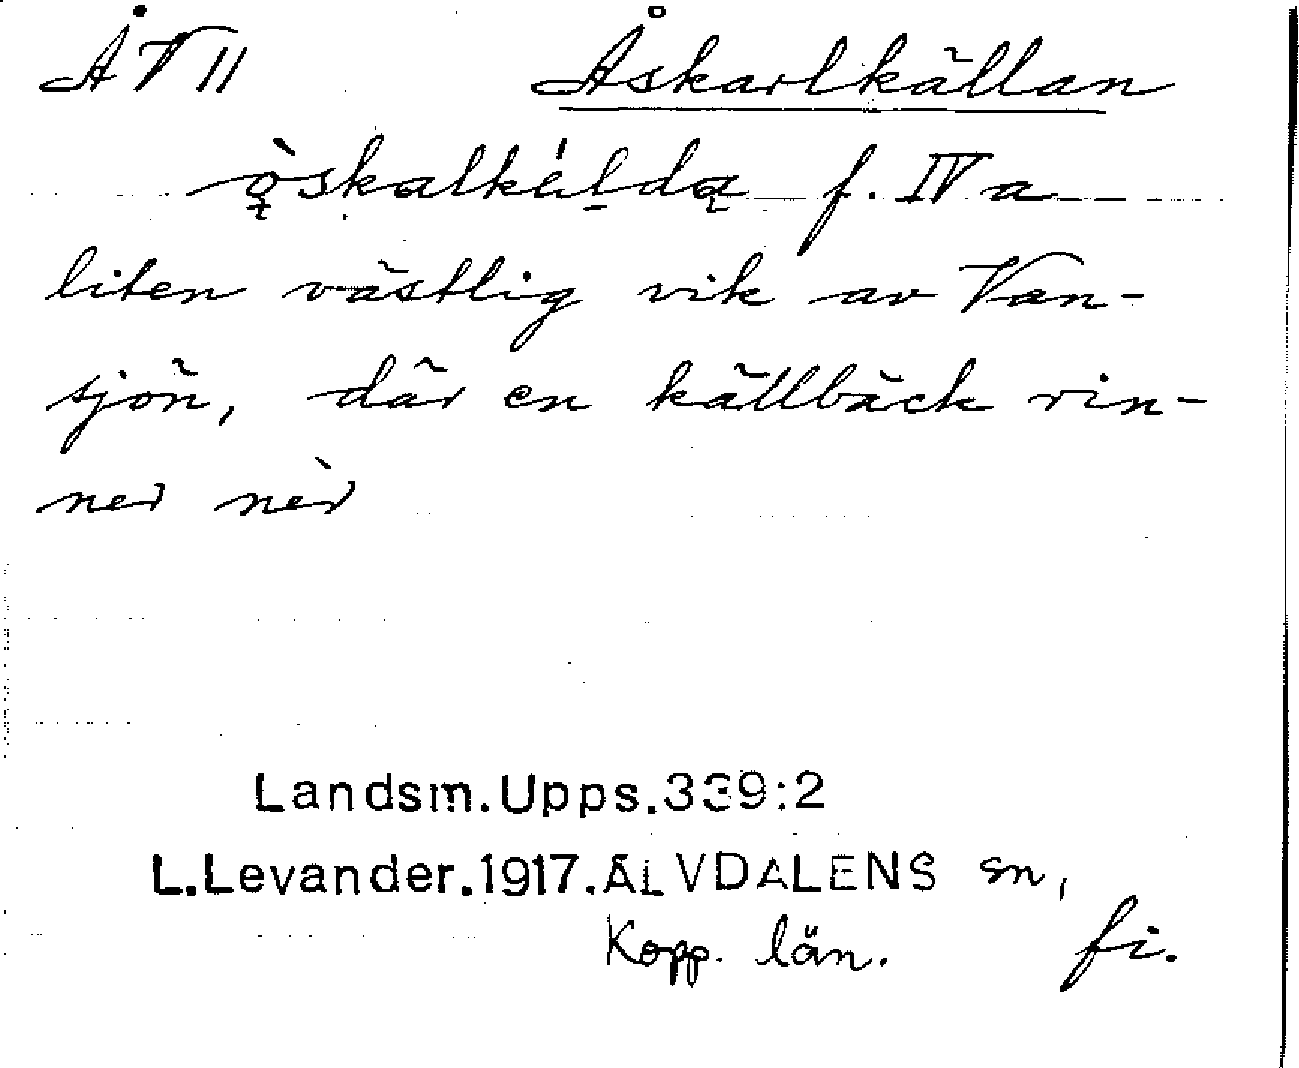 ÅT II Åskarlkällan
ǫ̀skalkȧ́ldą f. IV a
liten västlig vik av Van-
sjön, där en källbäck rin-
ner nèr
Landsm.Upps.339:2
L.Levander.1917.ÄLVDALENS sn,
Kopp. län. fi.